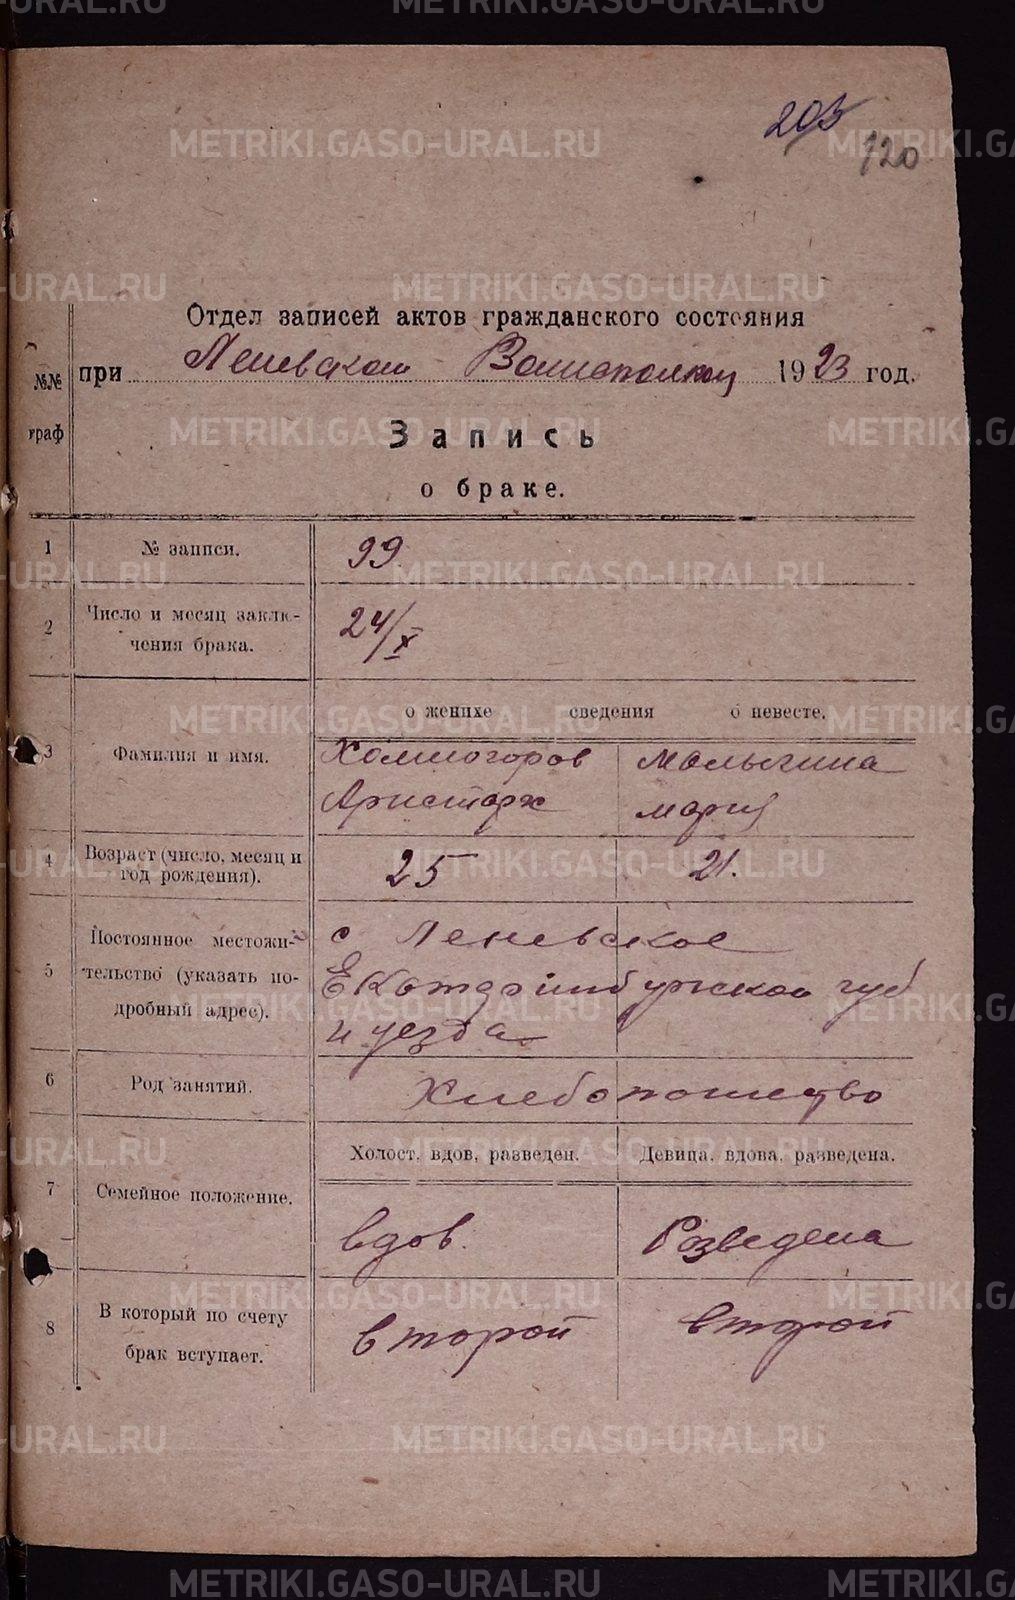 203
120
Отдел записей актов гражданского состояния
при Леневском Волисполком 1923 год.
№№ граф
Запись
о браке.
1 № записи. 99.
2 Число и месяц заклю-
чения брака. 24/X
о женихе сведения о невесте.
3 Фамилия и имя. Холмогоров Малыгина
Аристарх Мария
4 Возраст (число, месяц и
год рождения). 25 21.
5 Постоянное местожи-
тельство (указать по-
дробный адрес). с Леневское
Екатеринбургской губ
и уезда
6 Род занятий. Хлебопашество
Холост, вдов, разведен. Девица, вдова, разведена.
7 Семейное положение. вдов. Розведена
8 В который по счету
брак вступает. второй второй
METRIKI.GASO-URAL.RU